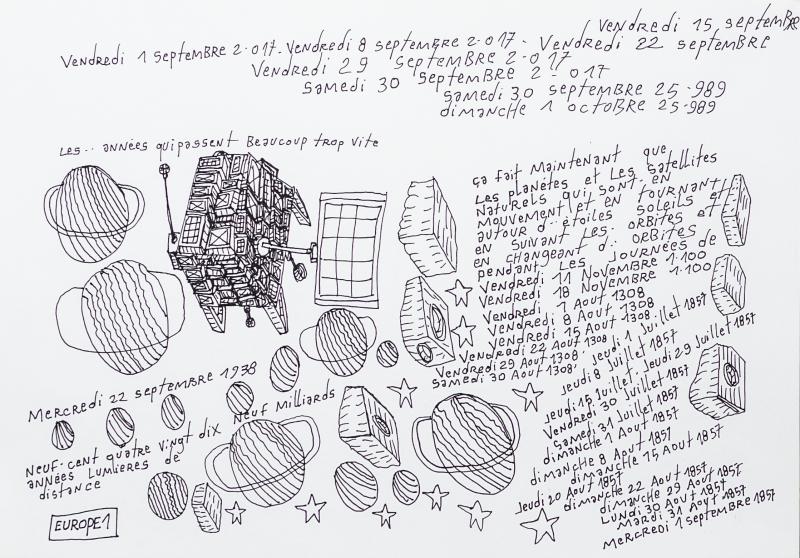 Vendredi 15 septembre
Vendredi 1 septembre 2·017. Vendredi 8 septembre 2·017· Vendredi 22 septembre
Vendredi 29 septembre 2·017
Samedi 30 septembre 2·017
Samedi 30 septembre 25·989
dimanche 1 octobre 25·989
Les·· années qui passent Beaucoup trop vite
ça fait Maintenant que
Les planètes et Les satellites
Naturels qui sont en
Mouvement et en tournant
autour d·· étoiles soleils et
en suivant Les·· orbites et
en changeant d·· orbites
pendant Les journées de
Vendredi 11 Novembre 1·100
Vendredi 18 Novembre 1·100
Vendredi 1 Aout 1308
Vendredi 8 Aout 1308
Vendredi 15 Aout 1308·
Vendredi 22 Aout 1308· jeudi 1 Juillet 1857
Vendredi 29 Aout 1308· jeudi 8 Juillet 1857
Samedi 30 Aout 1308·
jeudi 15 Juillet· Jeudi 29 Juillet 1857
Vendredi 30 Juillet 1857
Samedi 31 Juillet 1857
dimanche 1 Aout 1857
dimanche 8 Aout 1857
dimanche 15 Aout 1857
Jeudi 20 Aout 1857
dimanche 22 Aout 1857
dimanche 29 Aout 1857
Lundi 30 Aout 1857
Mardi 31 Aout 1857
Mercredi 1 septembre 1857
Mercredi 22 septembre 1938
Neuf·cent quatre vingt dix Neuf Milliards
années Lumières de
distance
EUROPE1